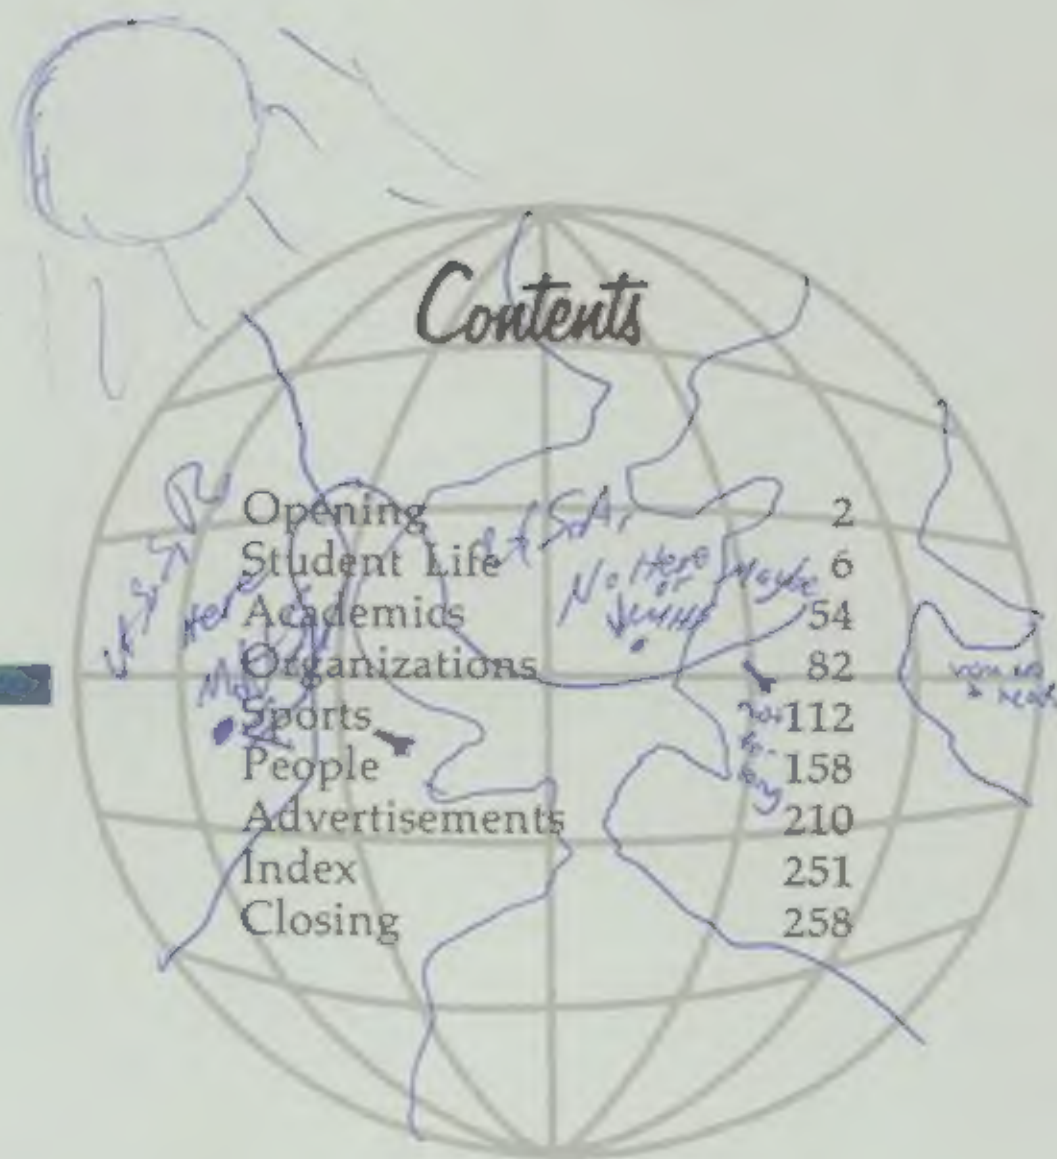 Contents
Opening 2
Student Life 6
Academics 54
Organizations 82
Sports 112
People 158
Advertisements 210
Index 251
Closing 258
U.S.S.R
Here
U.S.A.
No Here Maybe
or